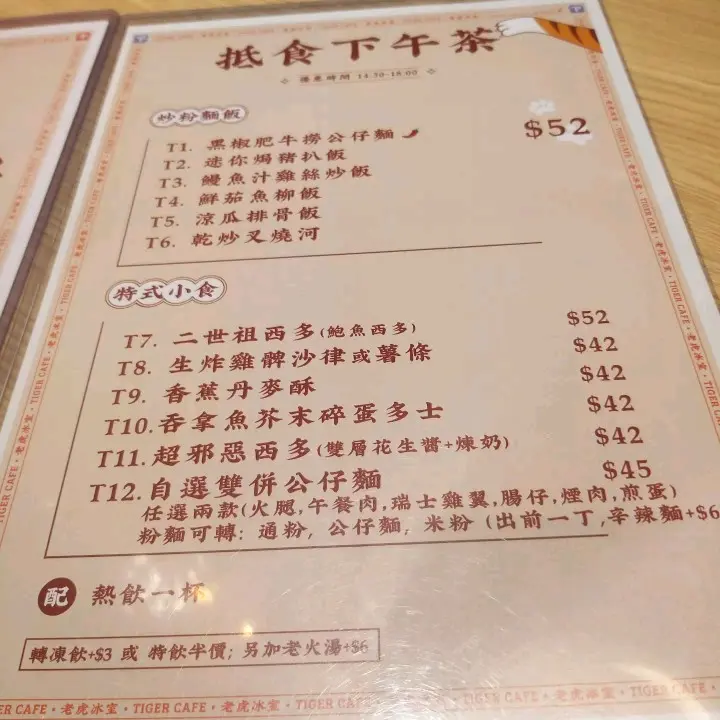 抵食下午茶
優惠時間 14:30-18:00
炒粉麵飯
$52
T1. 黑椒肥牛撈公仔麵
T2. 迷你焗豬扒飯
T3. 鰻魚汁雞絲炒飯
T4. 鮮茄魚柳飯
T5. 涼瓜排骨飯
T6. 乾炒叉燒河
特式小食
T7. 二世祖西多(鮑魚西多) $52
T8. 生炸雞髀沙律或薯條 $42
T9. 香蕉丹麥酥 $42
T10. 吞拿魚芥末碎蛋多士 $42
T11. 超邪惡西多(雙層花生醬+煉奶) $42
T12. 自選雙併公仔麵 $45
任選兩款(火腿,午餐肉,瑞士雞翼,腸仔,煙肉,煎蛋)
粉麵可轉: 通粉, 公仔麵, 米粉 (出前一丁,辛辣麵+$6
配 熱飲一杯
轉凍飲+$3 或 特飲半價; 另加老火湯+$6
TIGER CAFE・老虎冰室・TIGER CAFE・老虎冰室・TIGER CAFE・老虎冰室